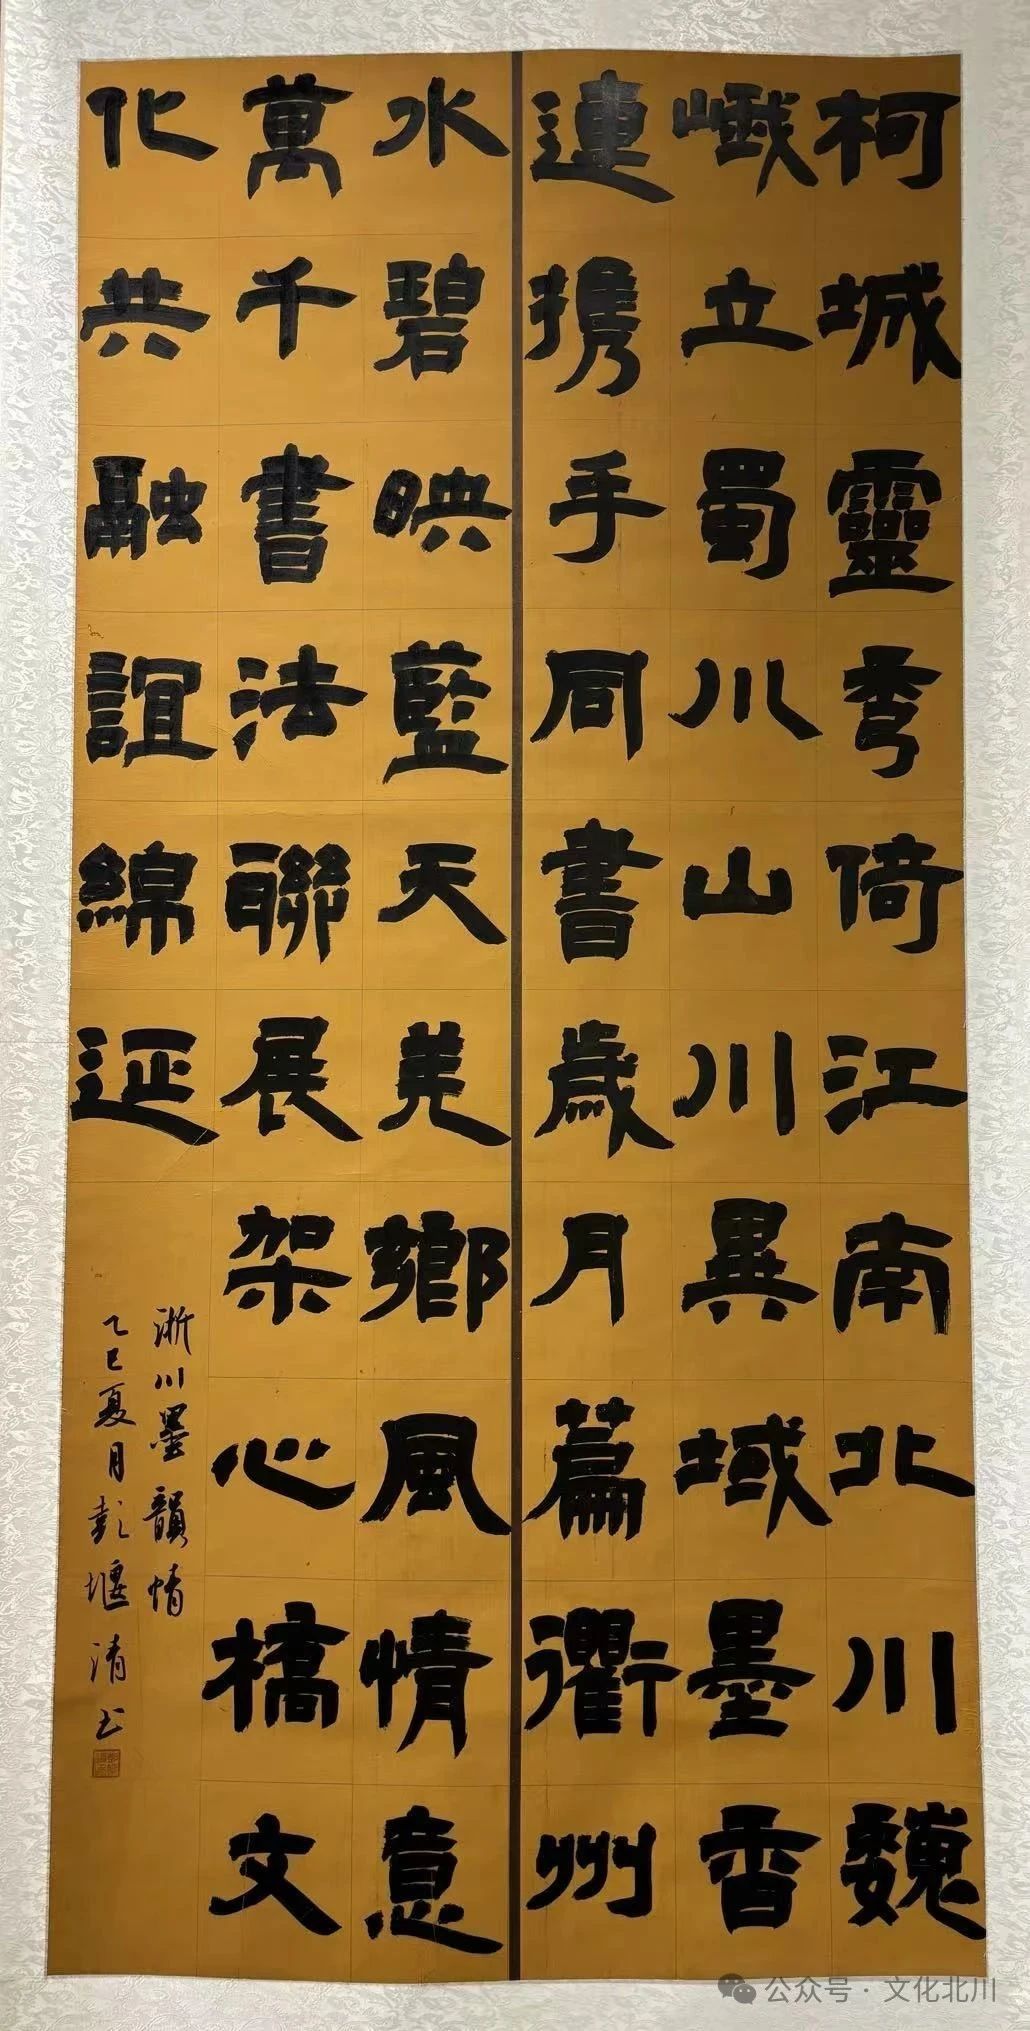 柯城靈秀倚江南北川魏
峨立蜀川山川異域墨香
連携手同書歲月篇衢州
水碧映藍天美鄉風情意
萬千書法聯展架心橋文
化共融誼綿延
浙川墨韻情
乙巳夏月彭堰清书
公众号·文化北川